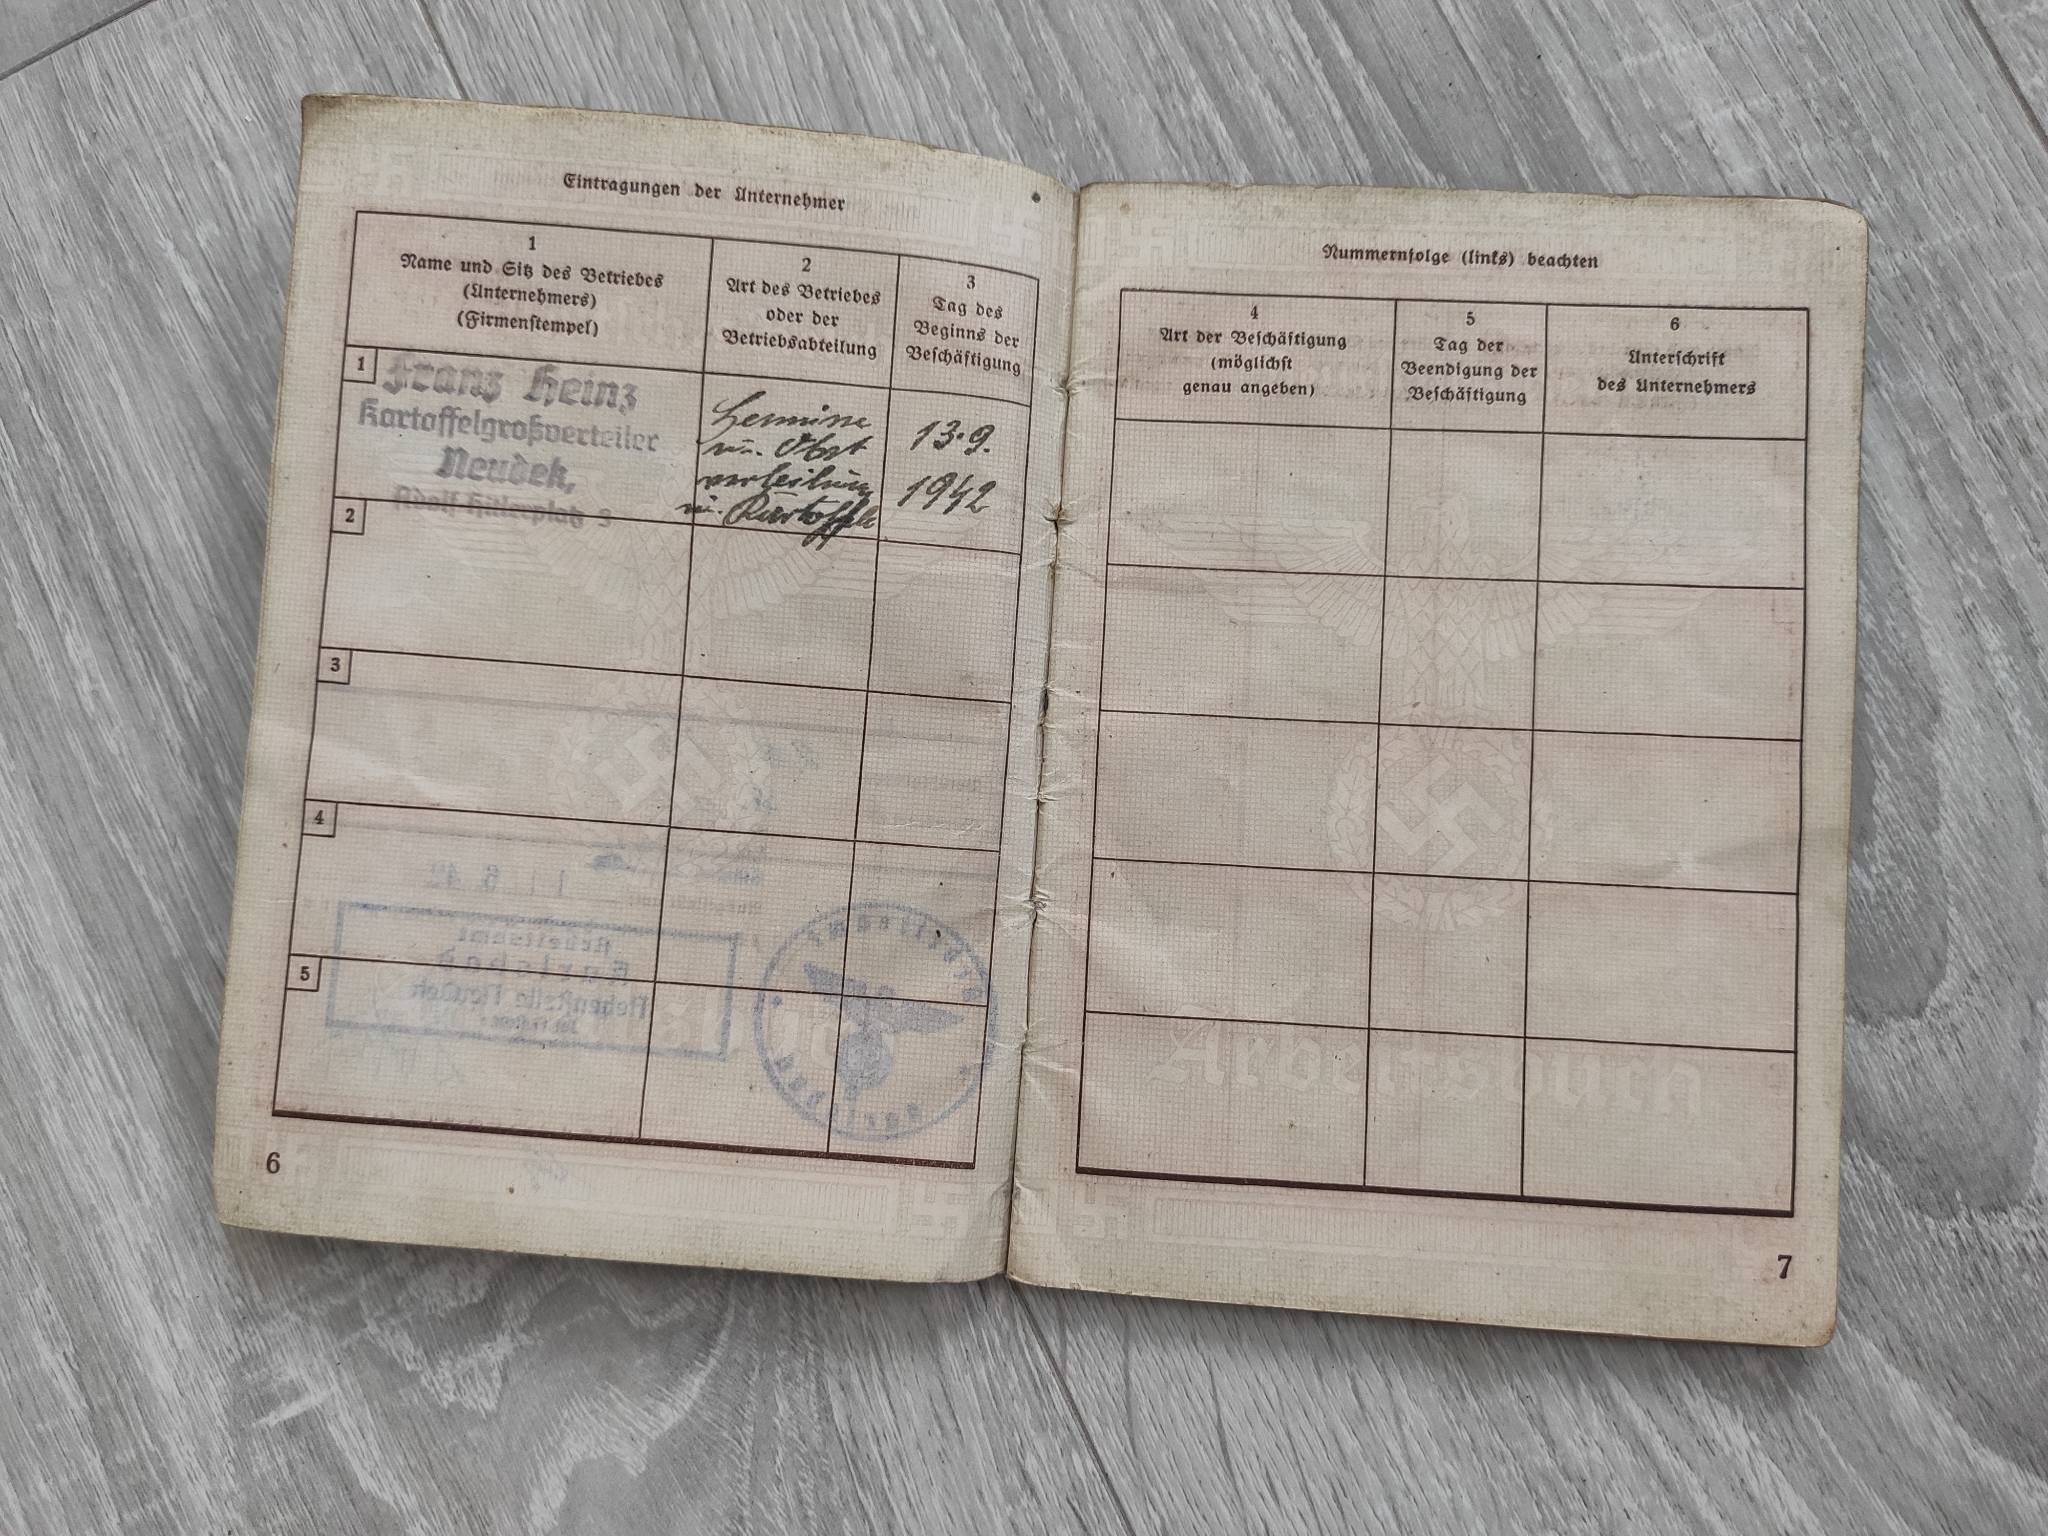 Eintragungen der Unternehmer
1
Name und Sitz des Betriebes
(Unternehmers)
(Firmenstempel)
2
Art des Betriebes
oder der
Betriebsabteilung
3
Tag des
Beginns der
Beschäftigung
1
Franz Heinz
Kartoffelgroßverteiler
Neudek,
Adolf Hitlerplatz
u. Obst
verteilung
u. Kartoffel
13.9.
1942
2
3
4
5
6
Nummernfolge (links) beachten
4
Art der Beschäftigung
(möglichst
genau angeben)
5
Tag der
Beendigung der
Beschäftigung
6
Unterschrift
des Unternehmers
Arbeitsbuch
7